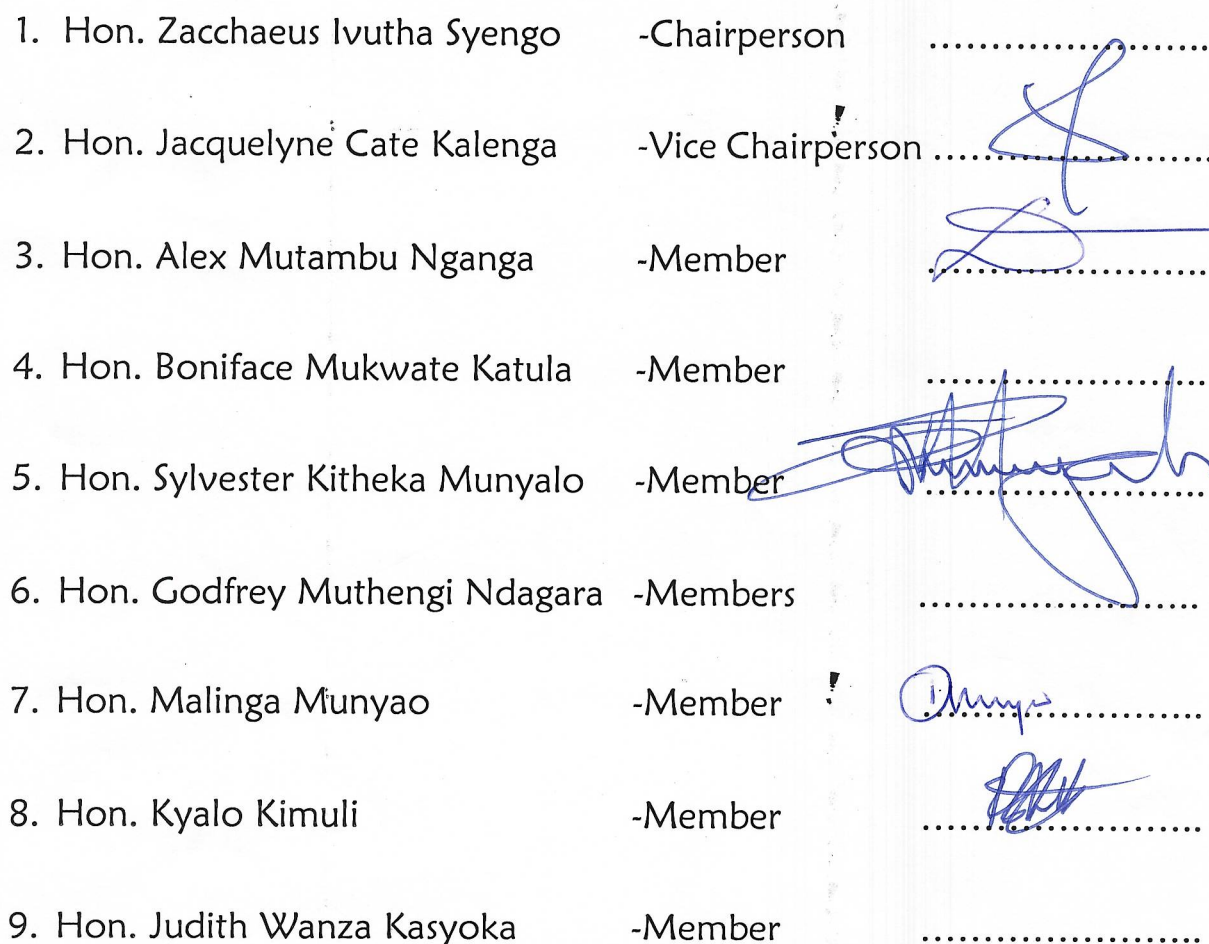 1. Hon. Zacchaeus Ivutha Syengo -Chairperson ..........................
2. Hon. Jacquelyne Cate Kalenga -Vice Chairperson ..........................
3. Hon. Alex Mutambu Nganga -Member ..........................
4. Hon. Boniface Mukwate Katula -Member ..........................
5. Hon. Sylvester Kitheka Munyalo -Member ..........................
6. Hon. Godfrey Muthengi Ndagara -Members ..........................
7. Hon. Malinga Munyao -Member ..........................
8. Hon. Kyalo Kimuli -Member ..........................
9. Hon. Judith Wanza Kasyoka -Member ..........................